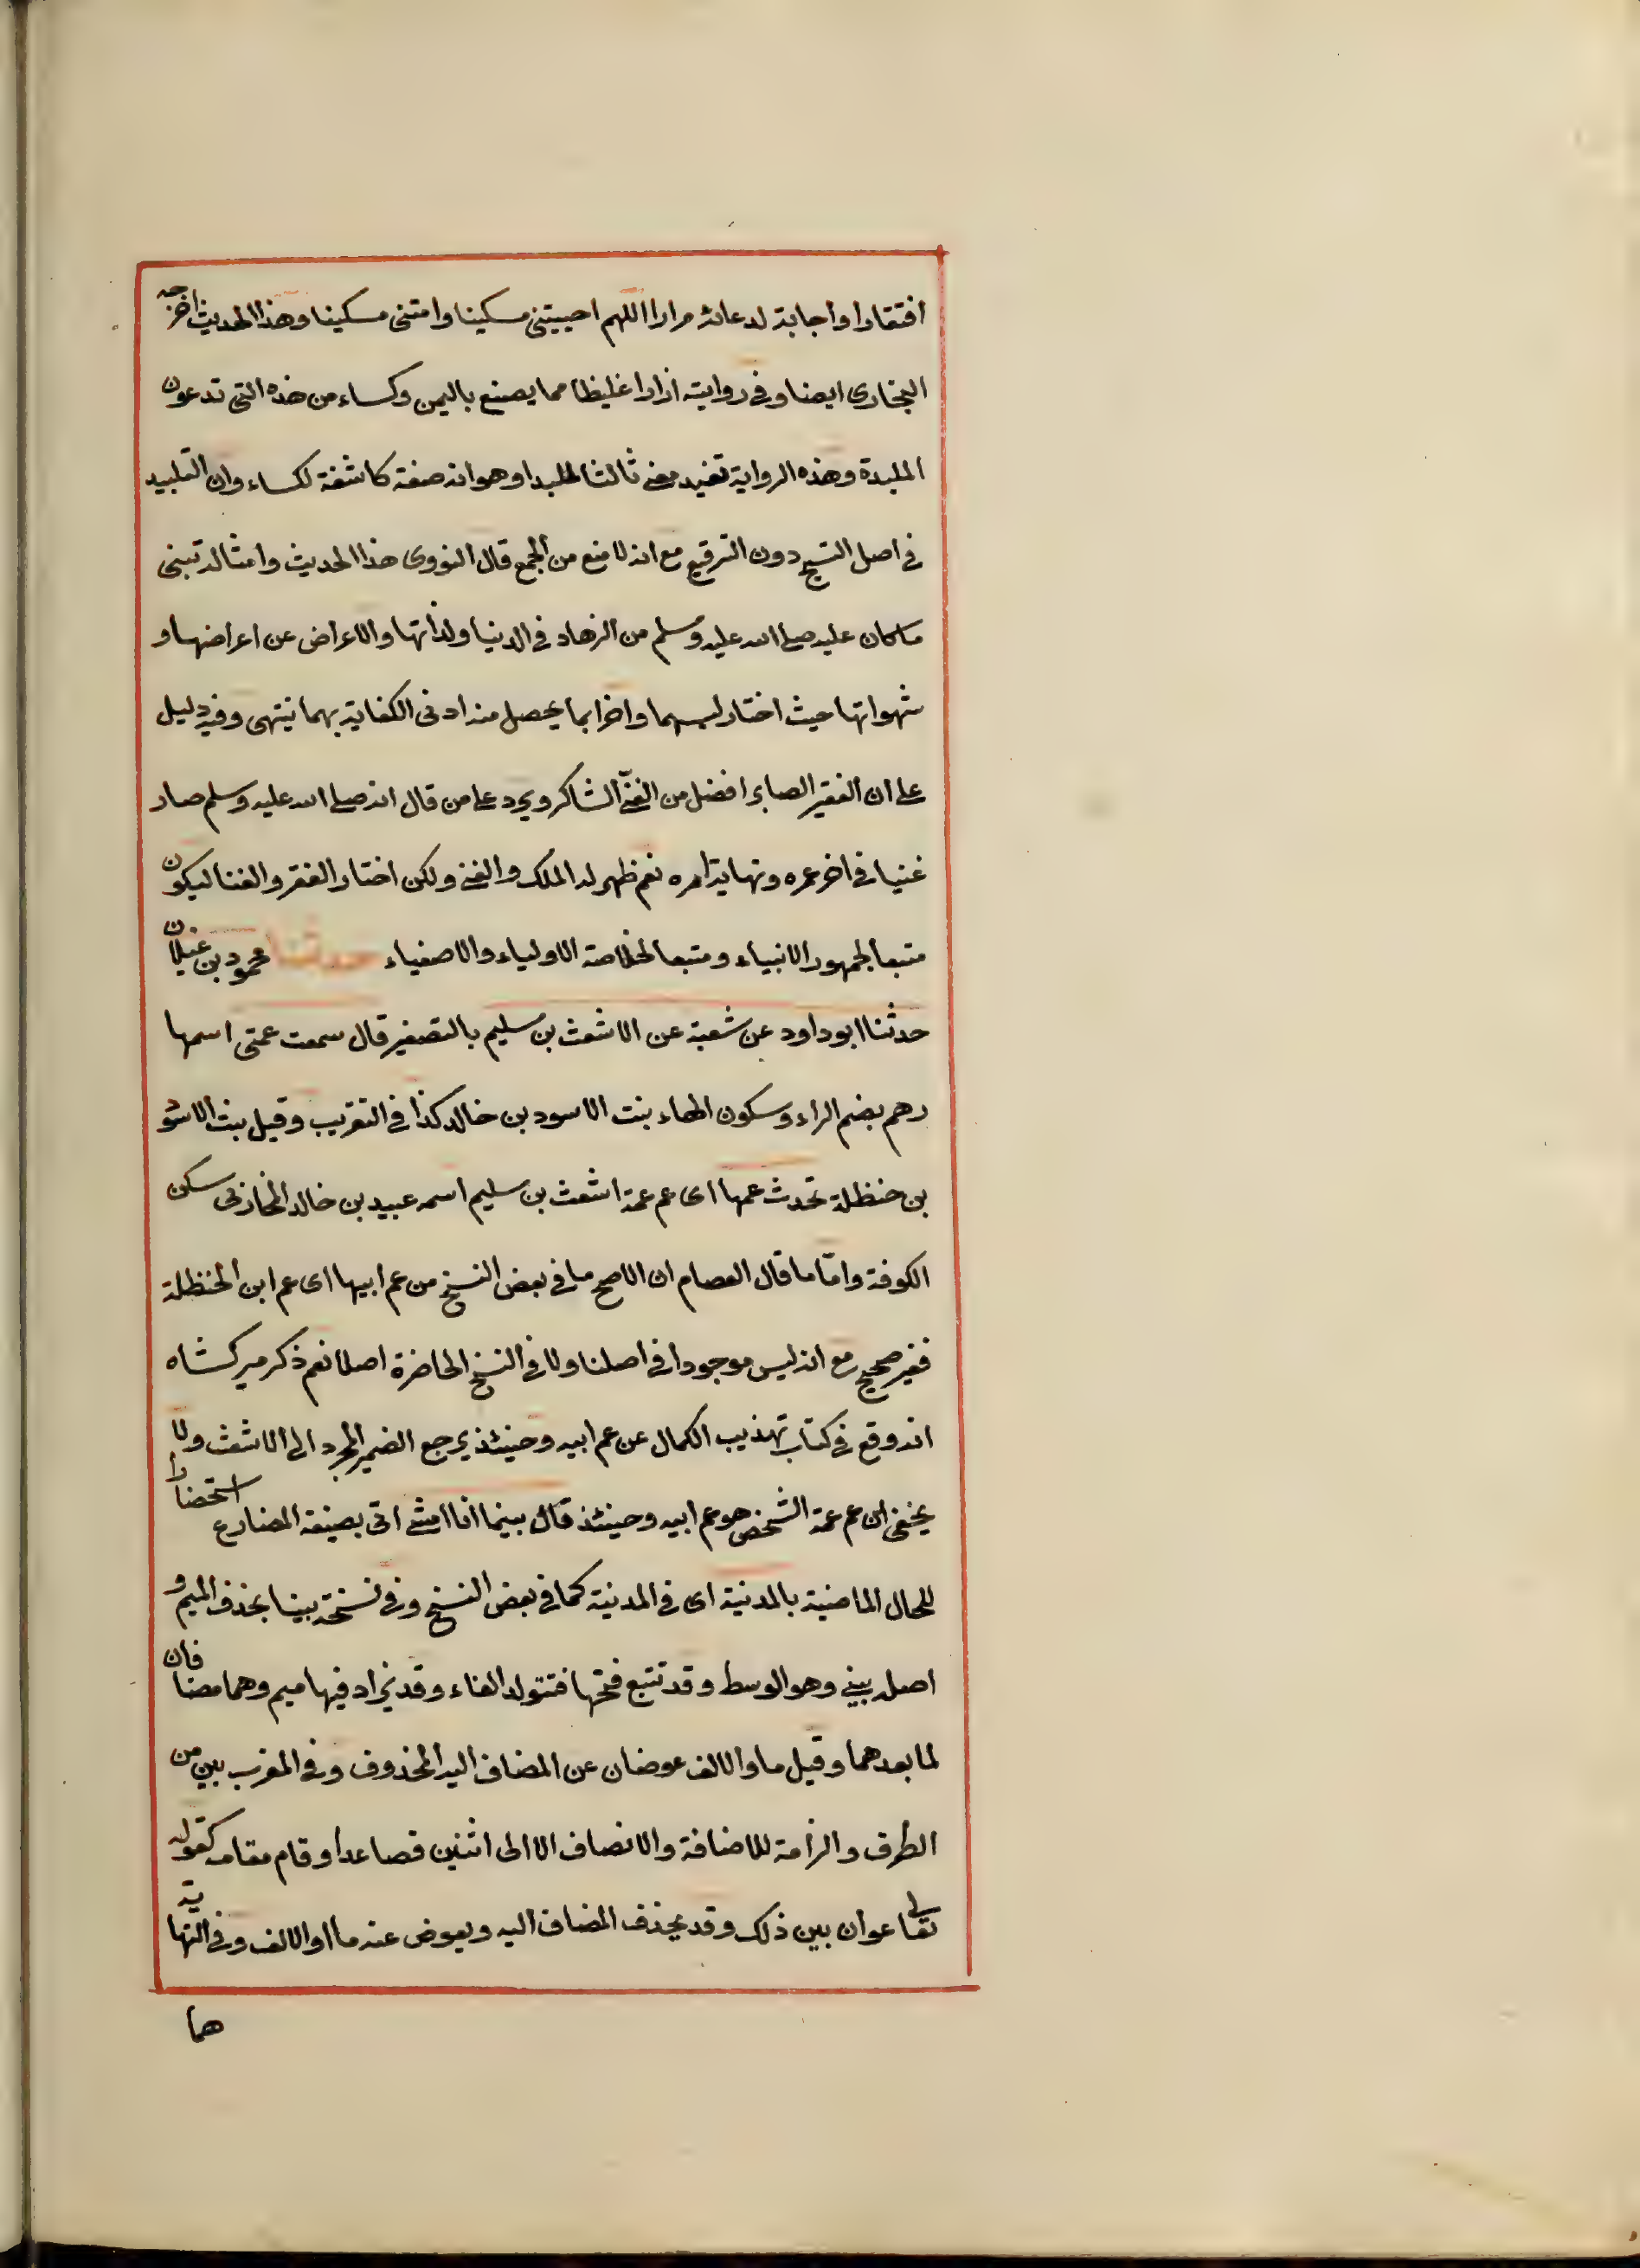 افتقارا واجابة لدعائه مرارا اللهم احييتنى مسكينا وامتنى مسكينا وهذا الحديث اخرجه
البخارى ايضا وفى رواية ازارا غليظا مما يصنع باليمن وكساء من هذه التى تدعون
الملبدة وهذه الرواية تفيد معنى ثالثا لملبدا وهو انه صفة كاشفة لكساء وان التلبيد
فى اصل النسج دون الترقيع مع انه لا منع من الجمع قال النووى هذا الحديث وامثاله تبنى
ما كان عليه صلى الله عليه وسلم من الزهاد فى الدنيا ولذاتها والاعراض عن اعراضها و
شهواتها حيث اختار لبسهما واخرا بما يحصل منه ادنى الكفاية بهما ينتهى وفيه دليل
على ان الفقير الصابر افضل من الغنّى الشاكر ويرد على من قال انه صلى الله عليه وسلم صار
غنيا فى اخر عمره ونهاية امره نعم ظهر له الملك والغنى ولكن اختار الفقر والفنا ليكون
متبعا لجمهور الانبياء ومتبعا لخلاصة الاولياء والاصفياء حدثنا محمود بن غيلان
حدثنا ابو داود عن شعبة عن الاشعث بن سليم بالتصغير قال سمعت عمتى اسمها
رهم بضم الراء وسكون الهاء بنت الاسود بن خالد كذا فى التقريب وقيل بنت الاسود
بن حنظلة تحدث عمها اى عم عمة اشعث بن سليم اسمه عبيد بن خالد المحاربى سكن
الكوفة وامّا ما قال العصام ان الاصح ما فى بعض النسخ من عم ابيها اى عم ابن الحنظلة
فغير صحيح مع انه ليس موجودا فى اصلنا ولا فى النسخ الحاضرة اصلا نعم ذكر ميركشاه
انه وقع فى كتاب تهذيب الكمال عن عم ابيه وحينئذ يرجع الضمير المجرد الى الاشعث ولا
يخفى ان عم عمة الشخص هو عم ابيه وحينئذ قال بينما انا امشى اتى بصيغة المضارع استحضارا
للحال الماضية بالمدنية اى فى المدنية كما فى بعض النسخ وفى نسخة بينا بحذف الميم و
اصله بينى وهو الوسط وقد تتبع فتحها فتتولد الفاء وقد يزاد فيها ميم وهما مضافان
لما بعدهما وقيل ما والالف عوضان عن المضاف اليه المحذوف وفى المغرب بين من
الظرف والزامة للاضافة والانصاف الا الى اثنين فصاعدا وقام مقامه كقوله
تعالى عوان بين ذلك وقد يحذف المضاف اليه ويعوض عنه ما او الالف وفى النهاية
هما